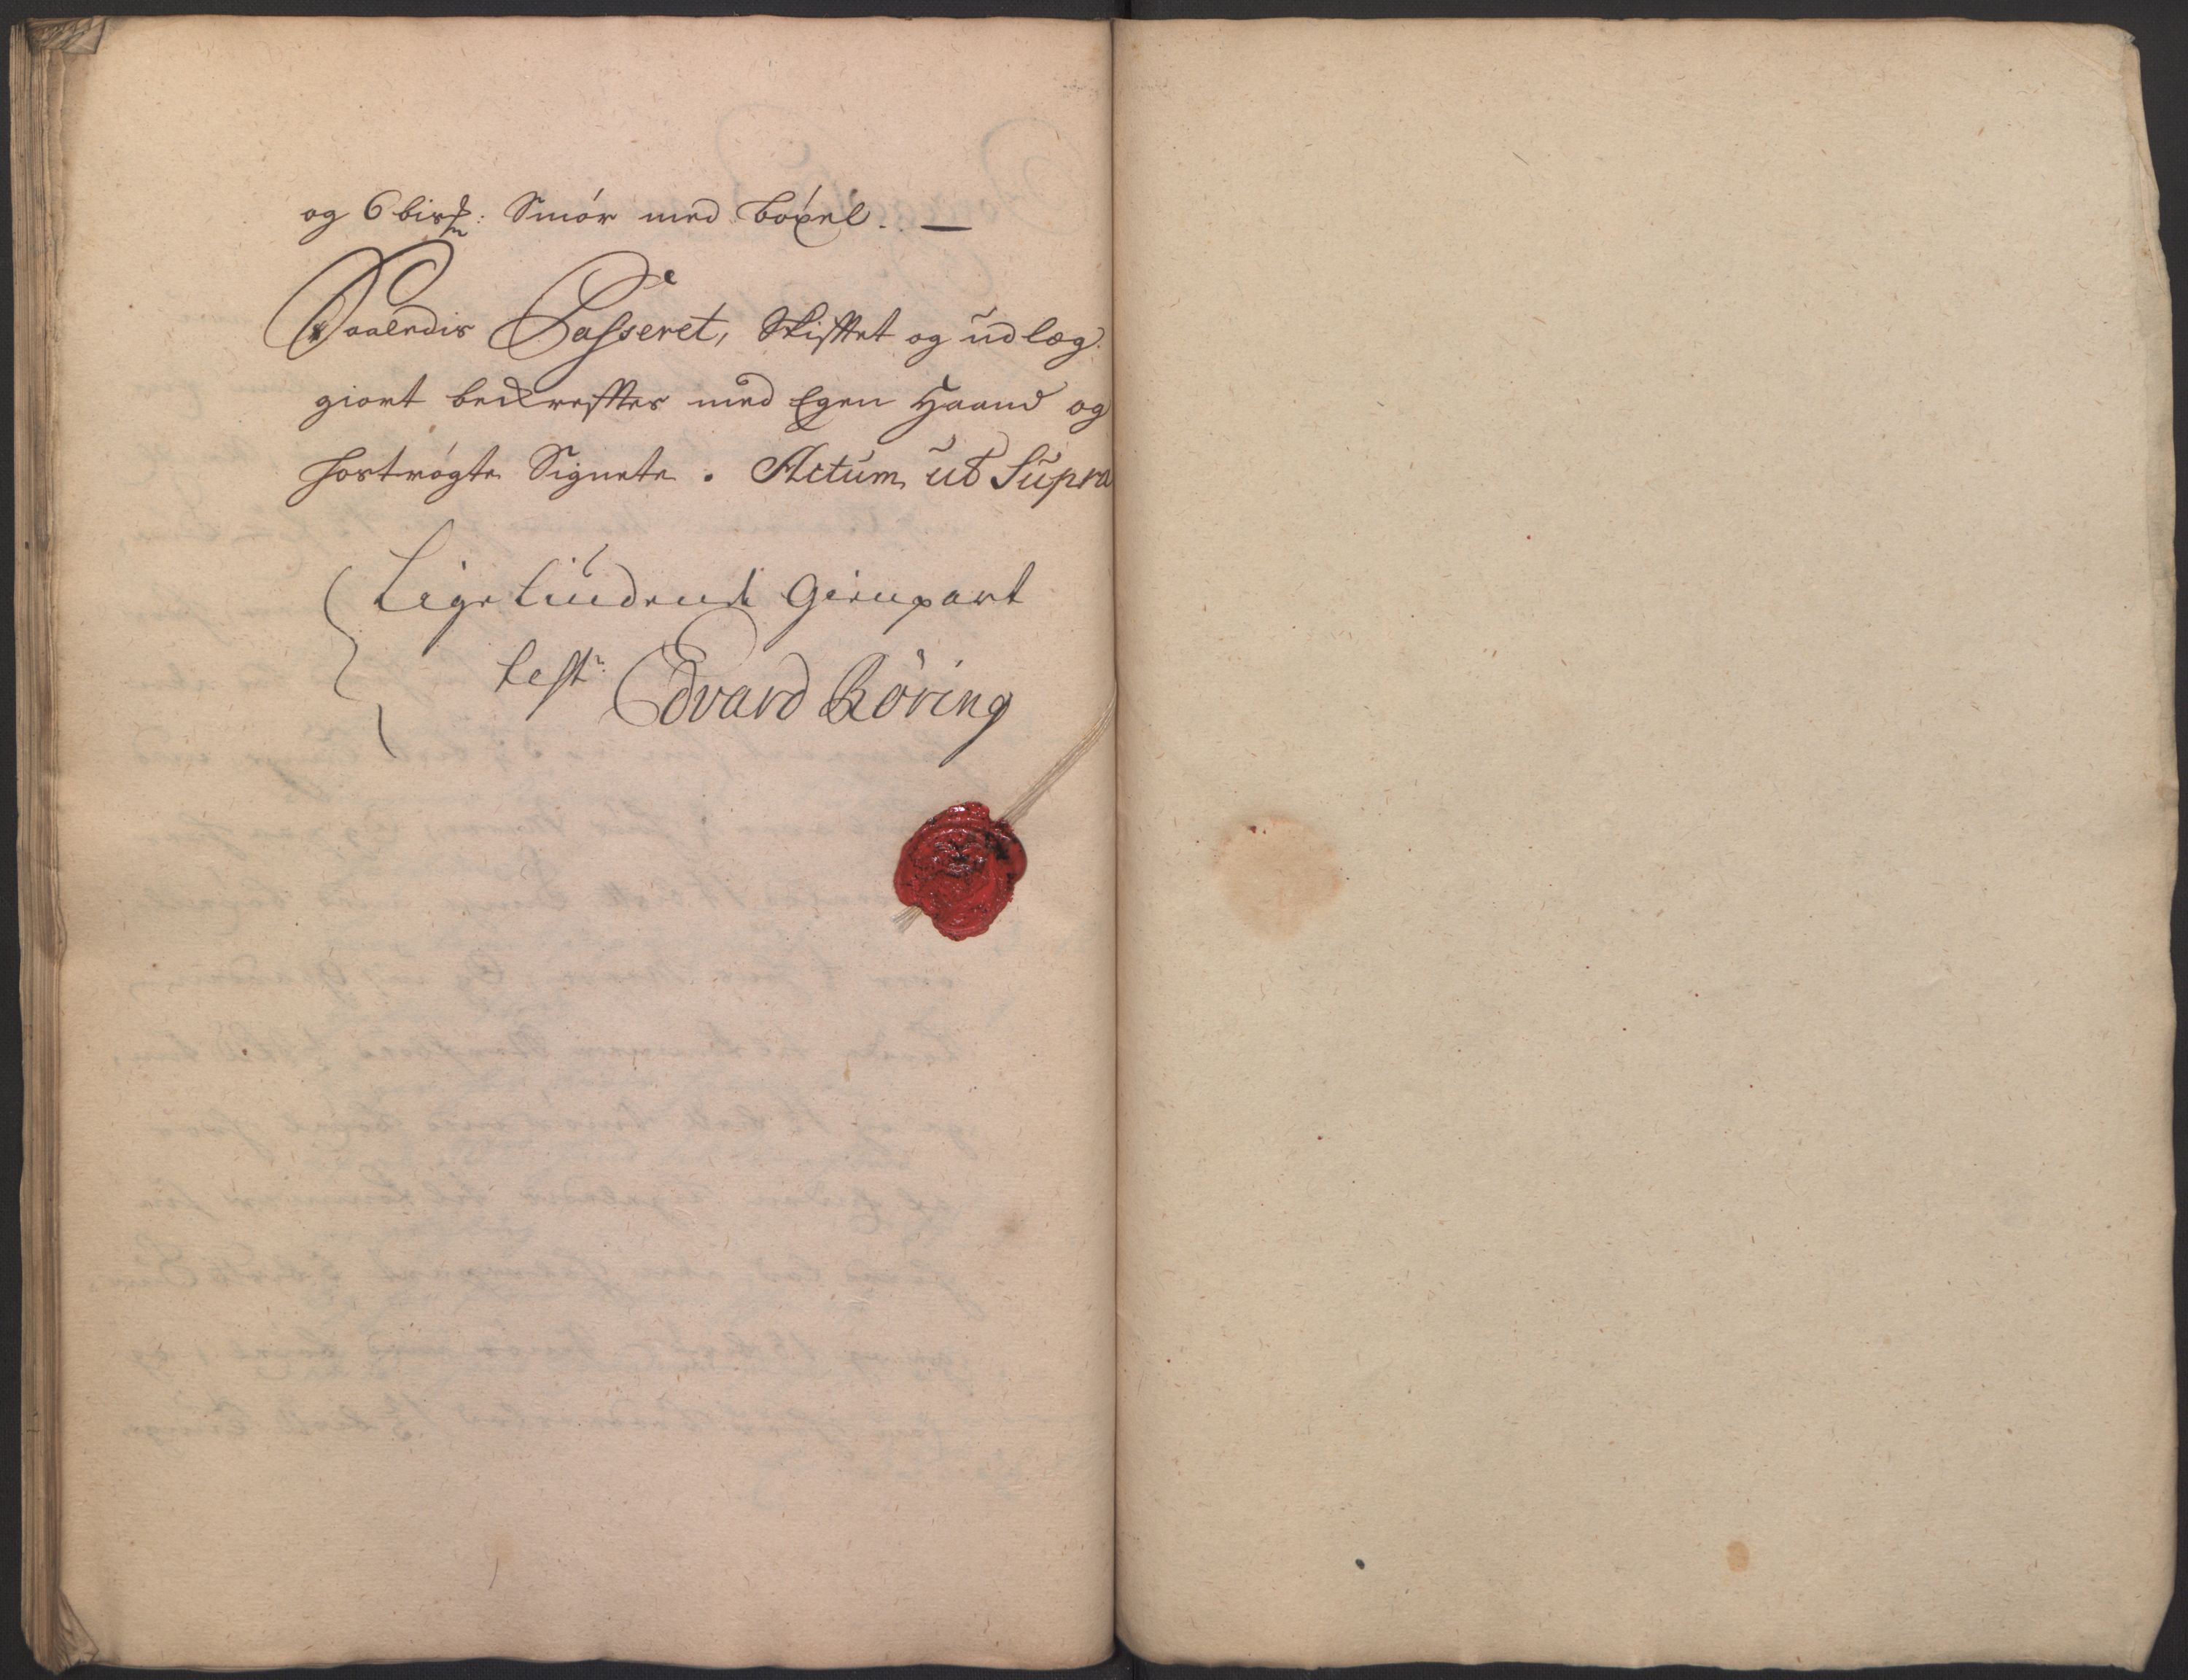 og 6 bisp: Smór med bóxel. —
Saaledis Passeret, Skifftet og udlæg
giort bekreffter med Egen Haand og
hostrógte Signete. Actum ut Supra
Ligelüdende Gienpart
test: Edvard Röring